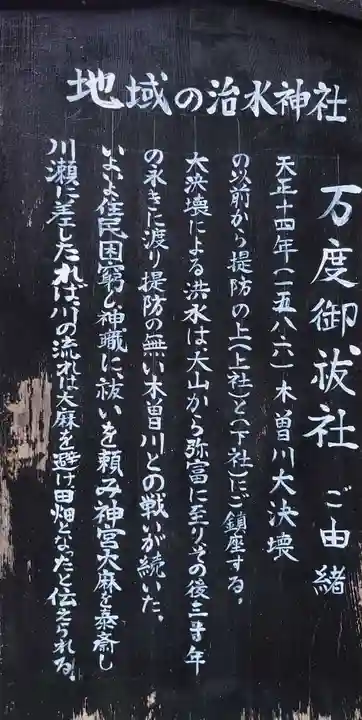 地域の治水神社
万度御祓社 ご由緒
天正十四年(一五八六)木曽川大決壊
の以前から堤防の上(上社)と(下社)にご鎮座する。
大決壊による洪水は、犬山から弥富に至りその後三百年
の永きに渡り堤防の無い木曽川との戦いが続いた。
いよいよ住民困窮し神職に祓いを頼み神宮大麻を奉斎し
川瀬に差したれば、川の流れは大麻を避け田畑となったと伝えられる。